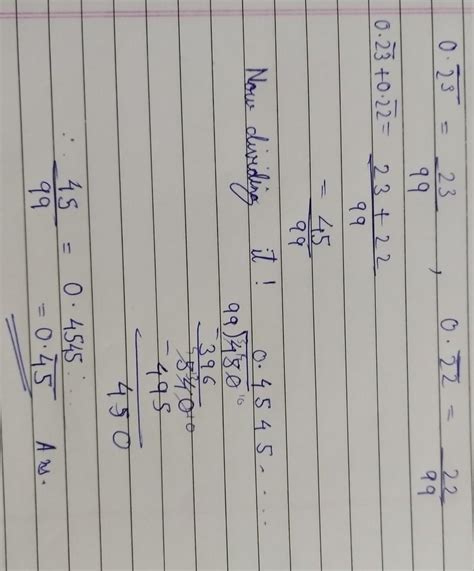 0.2̅3̅ = 23/99 , 0.2̅2̅ = 22/99
0.2̅3̅ + 0.2̅2̅ = 23 + 22/99
= 45/99
Now dividing it !
0.4545....
99)450
-396
540
-495
450
∴ 45/99 = 0.4545...
= 0.4̅5̅ Ans.